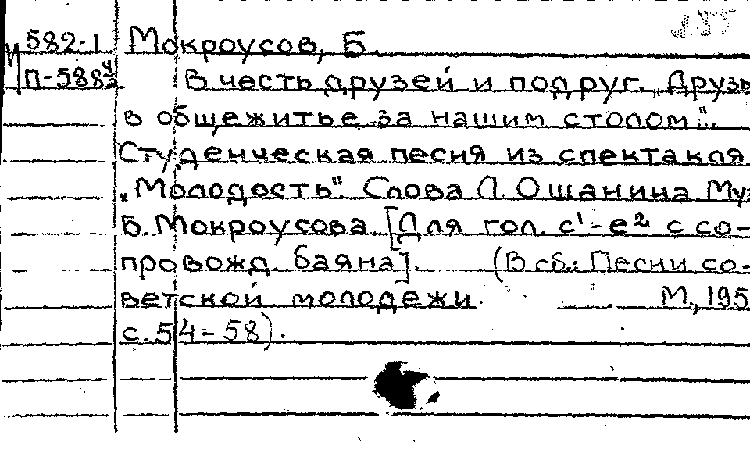 582-1 Мокроусов, Б.
П-588 В честь друзей и подруг. „Друзь
в общежитье за нашим столом"..
Студенческая песня из спектакля
„Молодость". Слова Л. Ошанина Муз
Б. Мокроусова. [Для гол. c¹-e² с со-
провожд. баяна]. (В сб.: Песни со-
ветской молодежи. М., 195
с. 54-58).